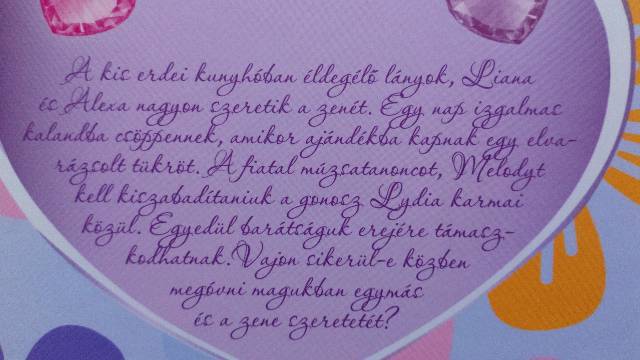 A kis erdei kunyhóban éldegélő lányok, Liana
és Alexa nagyon szeretik a zenét. Egy nap izgalmas
kalandba csöppennek, amikor ajándékba kapnak egy elva-
rázsolt tükröt. A fiatal múzsatanoncot, Melodyt
kell kiszabadítaniuk a gonosz Lydia karmai
közül. Egyedül barátságuk erejére támasz-
kodhatnak. Vajon sikerül-e közben
megóvni magukban egymás
és a zene szeretetét?